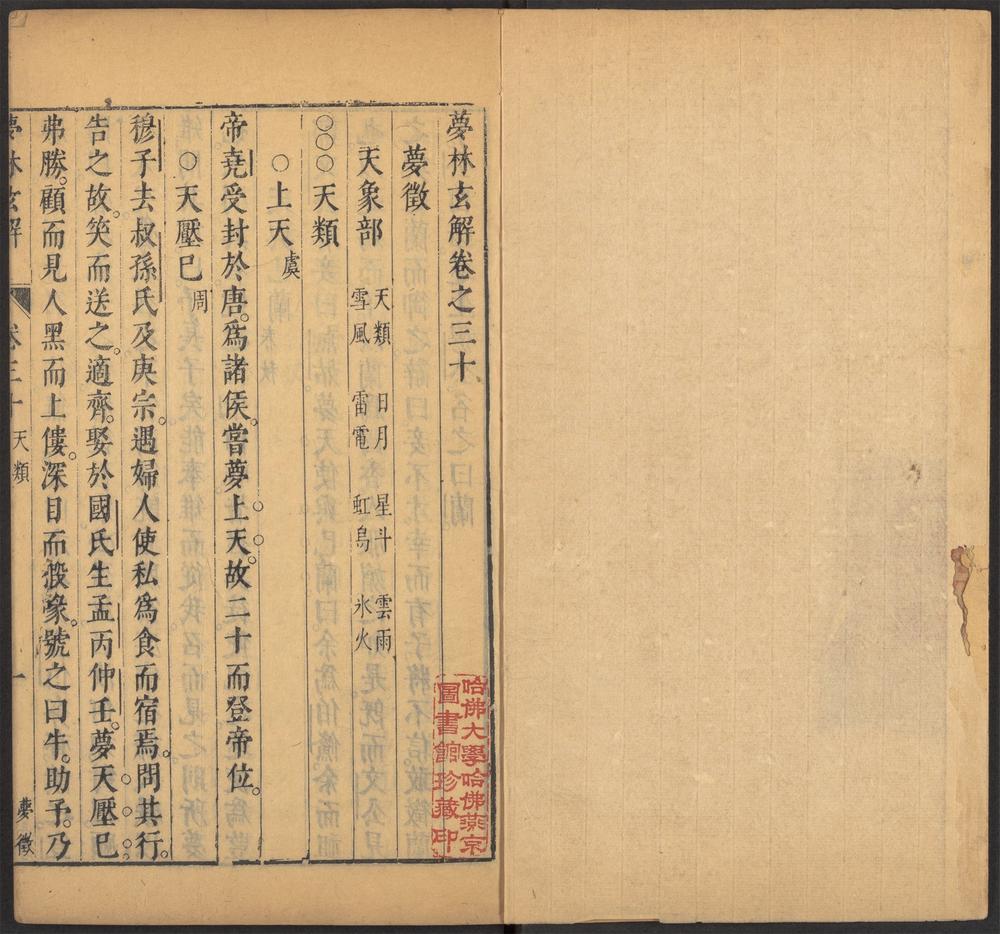 夢林玄解卷之三十
夢徵
天象部 天類 日月 星斗 雲雨
雪風 雷電 虹烏 氷火
○○○天類
○上天 虞
帝堯受封於唐。爲諸侯。嘗夢上天。故二十而登帝位。
○天壓巳 周
穆子去叔孫氏及庚宗。遇婦人使私爲食而宿焉。問其行。
告之故。哭而送之。適齊。娶於國氏生孟丙仲壬。夢天壓巳。
弗勝。顧而見人黑而上僂。深目而豭喙。號之曰牛。助予。乃
夢林玄解 卷三十 天類 一 夢徵
哈佛大學哈佛燕京
圖書館珍藏印